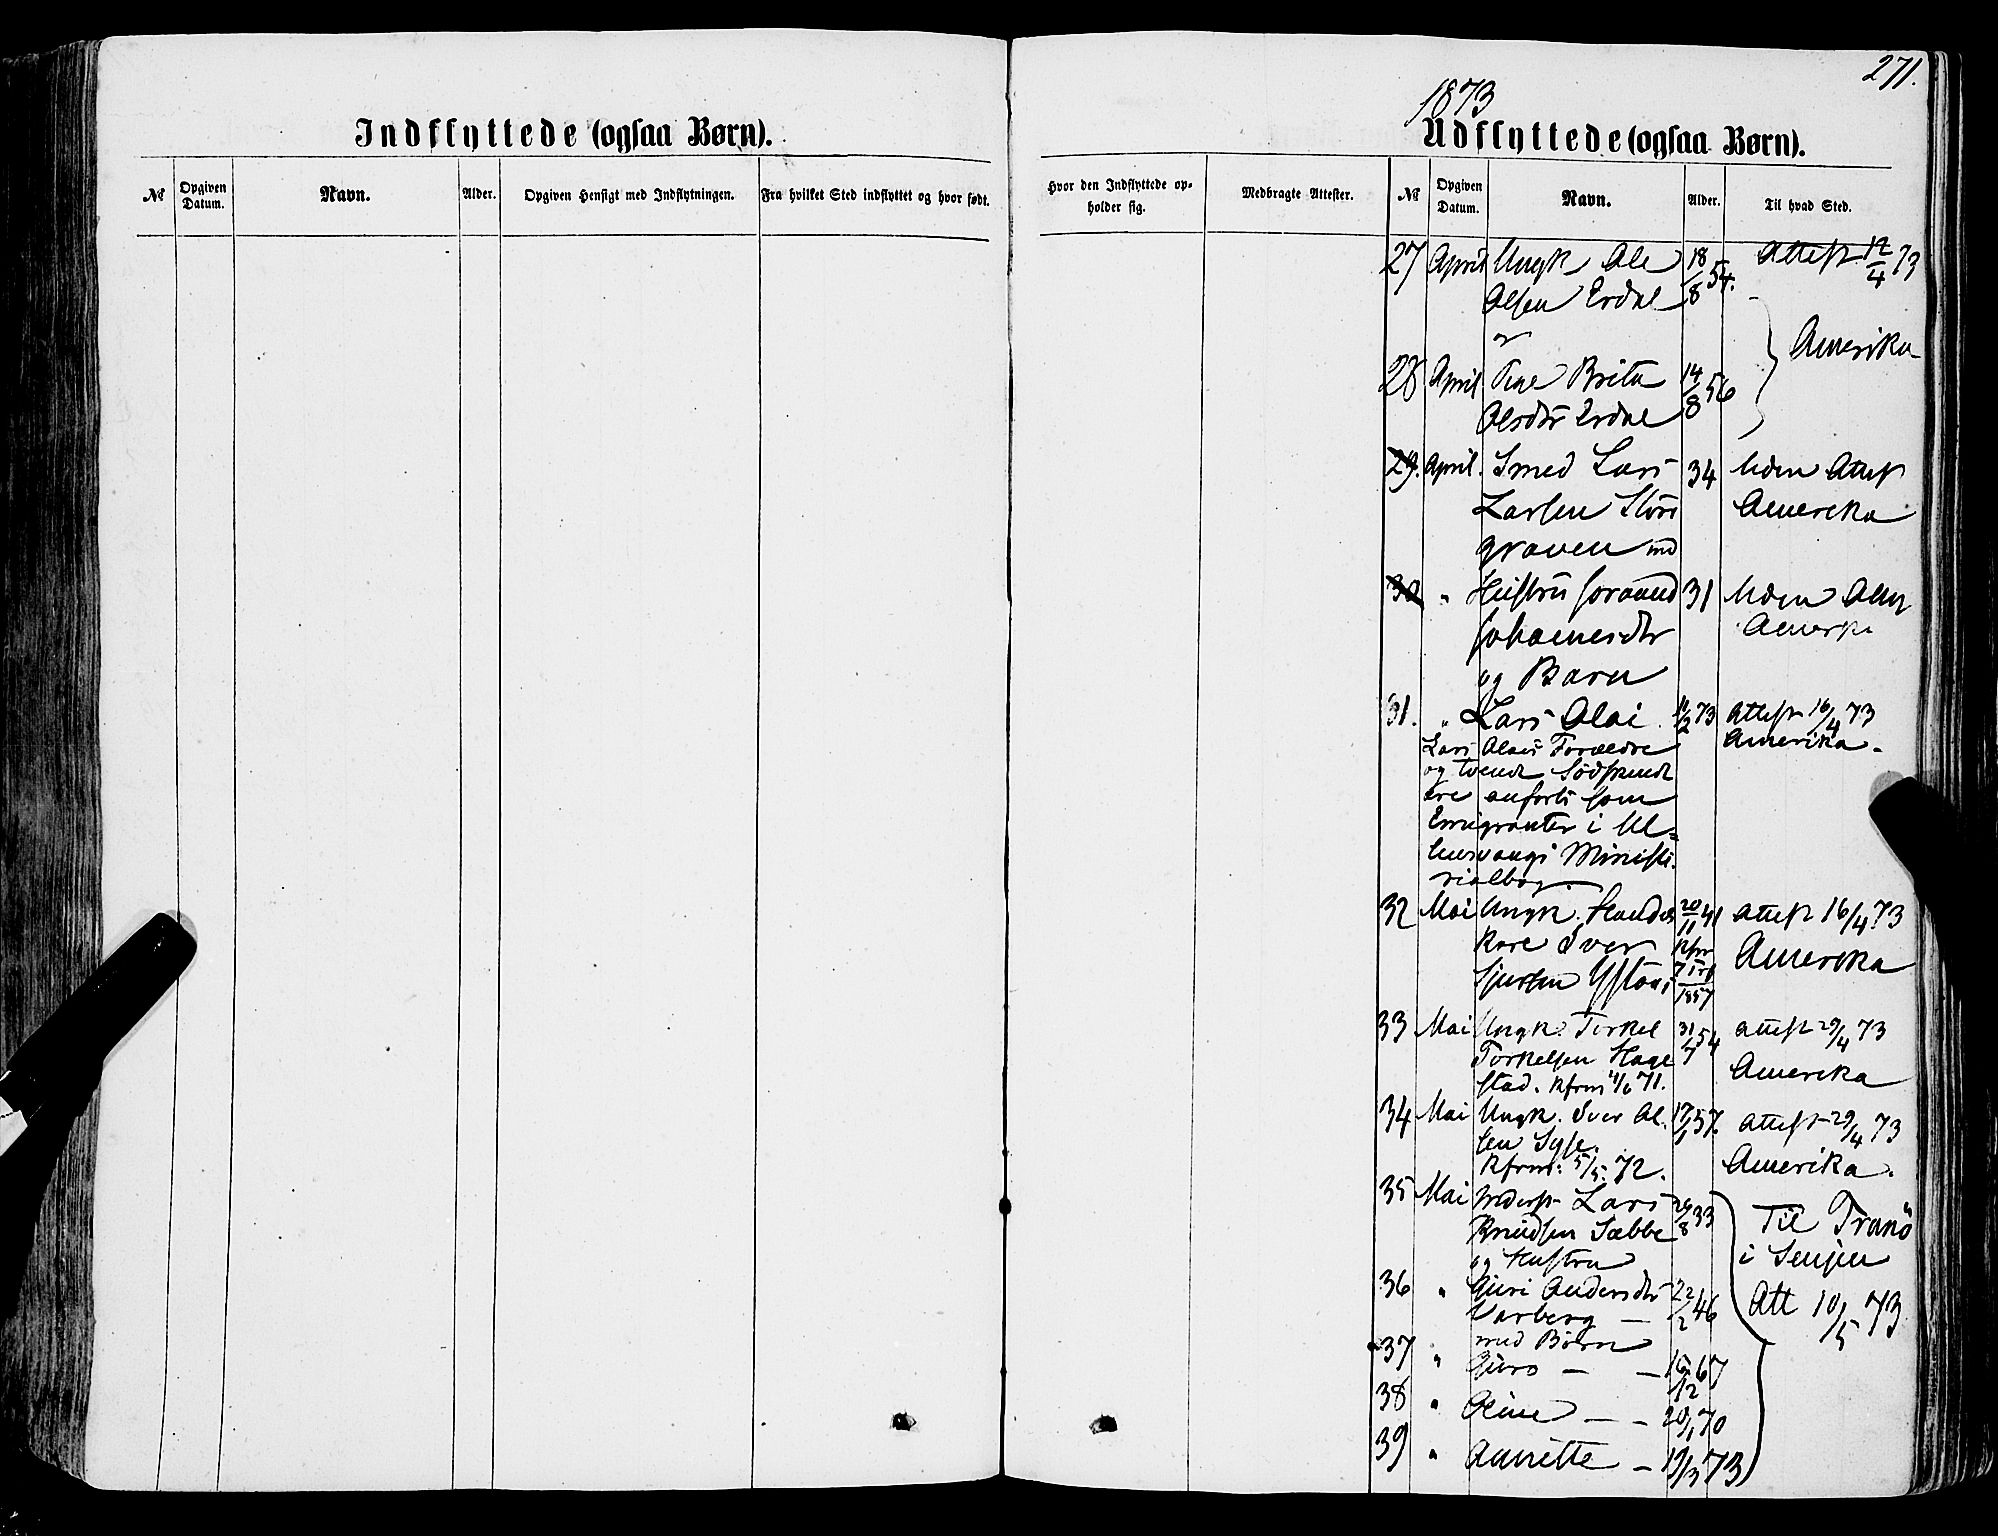 271.
1873
Indflyttede (ogsaa Børn).
Udflyttede (ogsaa Børn).
№ Opgiven Datum. Navn. Alder. Opgiven Hensigt med Indflytningen. Fra hvilket Sted indflyttet og hvor født.
Hvor den Indflyttede opholder sig. Medbragte Attester. № Opgiven Datum. Navn. Alder. Til hvad Sted.
27 April Ungk Ole 18/8 54. Attest 12/4 73
Olsen Erdal
og Amerika
28 April Pige Brita 14/8 56
Olsdtr Erdal
29. April. Smed Lars 34 Uden Attest
Larsen Amerika
graven md
30 " Hustru 31 Uden
Johannesdtr
og Barn
31. " Lars Olai 73 Attest 16/4 73
Lars Olais Forældre Amerika
og tvende Sødskende
ere anførte som
Emigranter i Ul=
lensvangs Ministe
rialbog.
32 Mai Ungk. 20/11 41 attest 16/4 73
Iver Kfr Amerika
Sjursen 1857
33 Mai Ungk. Torkel 31/7 54 attest 29/4 73
Torkelsen Hage
stad. Kfrm 4/6 71. Amerika
34 Mai Ungk. Iver Ol. 57. attest 29/4 73
sen Syse.
Kfrm: 5/5. 72. Amerika.
35 Mai Lars 33 Til Tranö
Knudsen Sæbbe i Senjen
og Hustru
36 " Guri Andersdtr 22/2 46 Att 10/5 73
Varberg —
med Børn
37 " Guro — — 67
38 " Oline — — 20/1 70
39 " Annette — 19/3 73